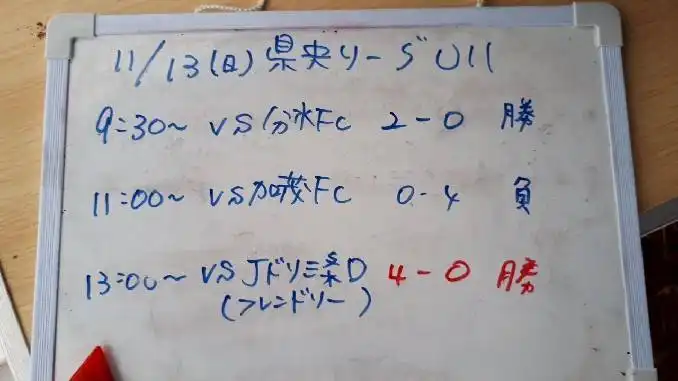 11/13(日)県央リーグU11
9:30〜 VS分水FC 2-0 勝
11:00〜 VS加茂FC 0-4 負
13:00〜 VS Jドリ三条D 4-0 勝
(フレンドリー)